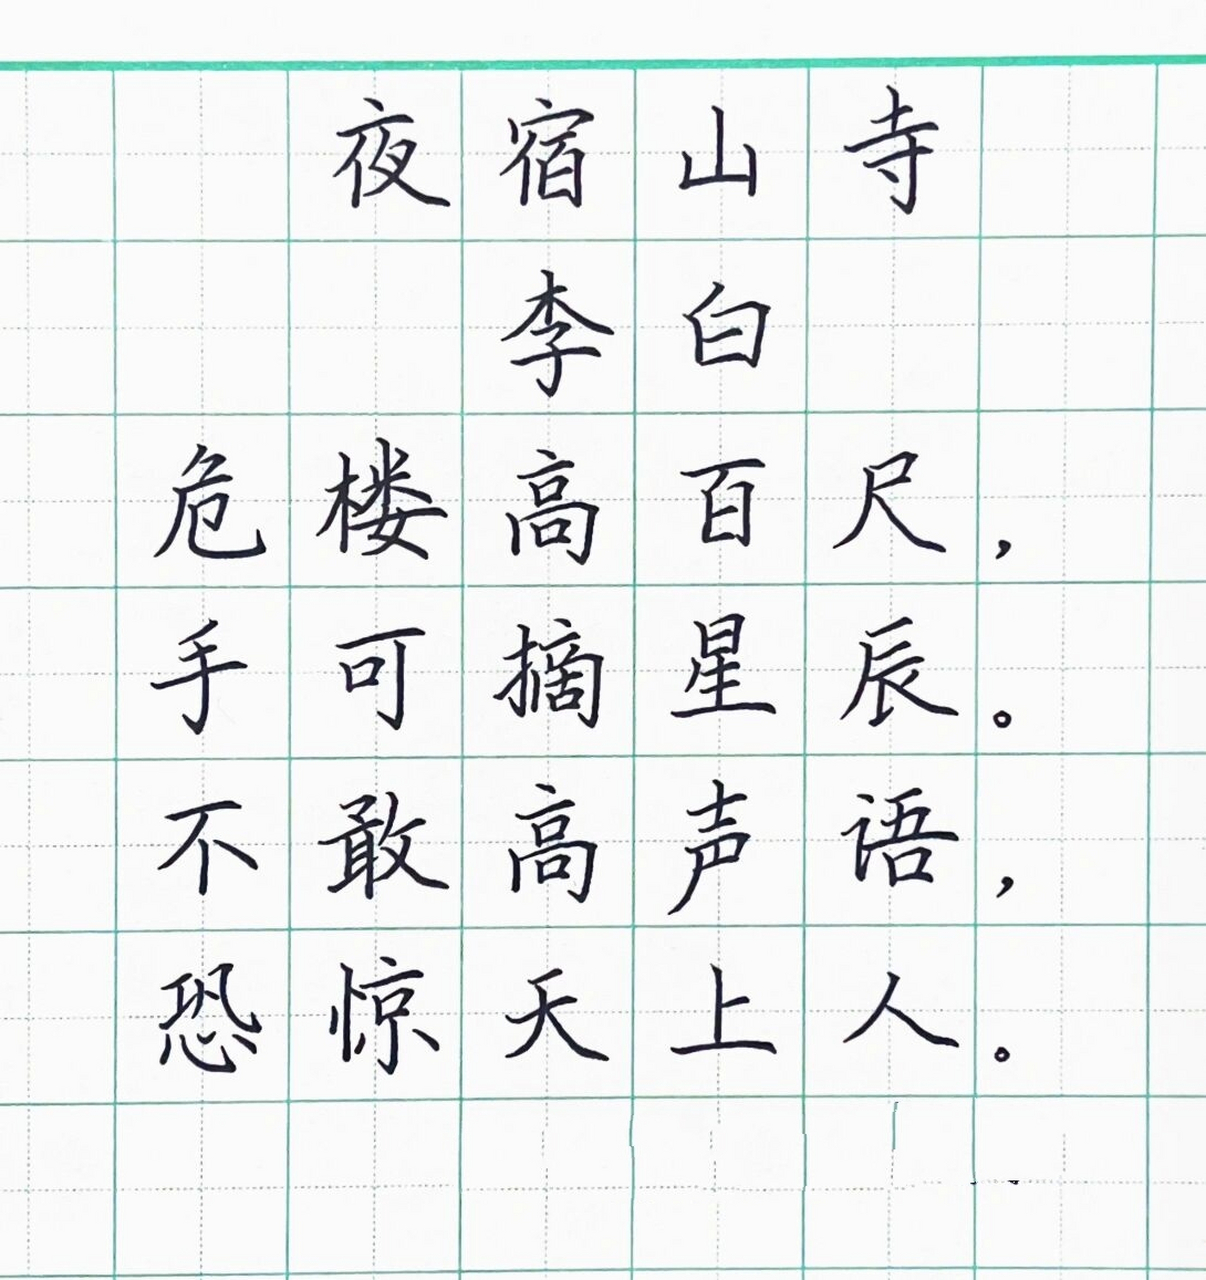 夜宿山寺
李白
危楼高百尺，
手可摘星辰。
不敢高声语，
恐惊天上人。